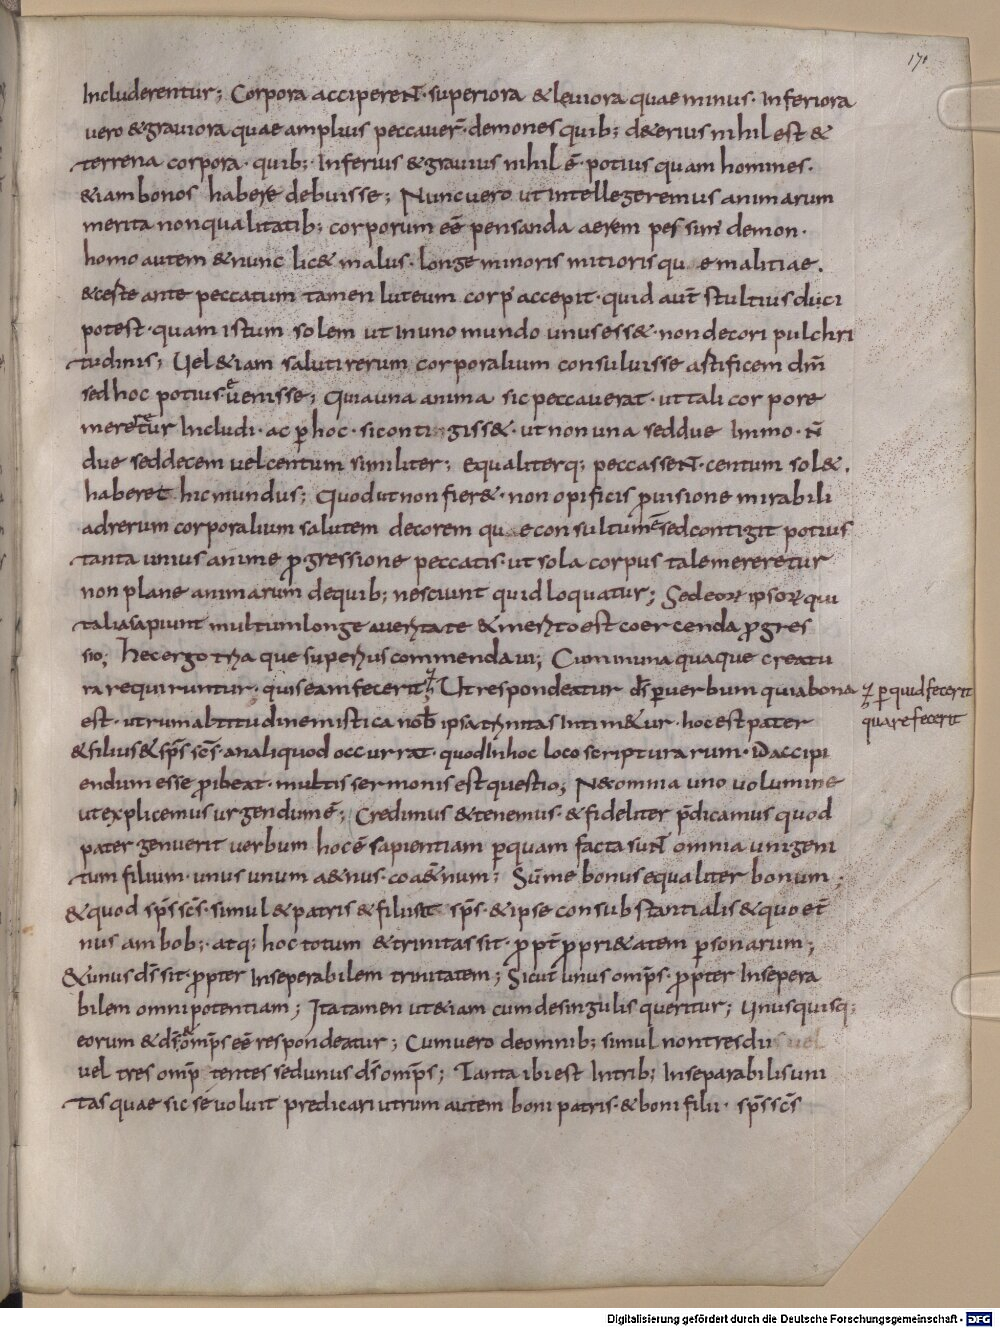 170
Includerentur; Corpora acciperent· superiora & leuiora quae minus· Inferiora
uero & grauiora quae amplius peccauer̄· demones quib; d&erius nihil est &
terrena corpora· quib; Inferius & grauius nihil ē· potius quam homines·
&iam bonos habere debuisse; Nunc uero ut intellegeremus animarum
merita non qualitatib; corporum eē pensanda aerem pessim᾽ demon·
homo autem & nunc lic& malus· longe minoris mitioris qu e malitiae.
& certe ante peccatum tamen luteum corp᾽ accepit· quid aut̄ stultius dici
potest· quam istum solem ut in uno mundo unus ess&· non decori pulchri
tudinis; Uel &iam saluti rerum corporalium consuluisse artificem dm̄
sed hoc potius euenisse; Quia una anima sic peccauerat· ut tali corpore
mereretur Includi· ac ꝑ hoc· si contigiss&· ut non una sed due Immo· n̄
due sed decem uel centum similiter; Equaliterq; peccassent· centum sol&.
haberet hic mundus; Quod ut non fier&· non opificis ꝓuisione mirabili
ad rerum corporalium salutem decorem qu e consultum ē sed contigit potius
tanta unius anime ꝓgressione peccatis· ut sola corpus tale mereretur
non plane animarum de quib; nesciunt quid loquatur; Sed eoꝝ ipsoꝝ qui
talia sapiunt multum longe a ueritate & merito est coercenda ꝓgres
sio; Hec ergo tria que superius commendaui; Cum in una quaque creatu
ra requiruntur· quis eam fecerit; Ut respondeatur ds̄ ꝑ uerbum quia bona
⁊ ꝑ quid fecerit
quare fecerit
est· utrum altitudine mistica nob̄ ipsa trinitas Intim&ur· hoc est pater
& filius & sp̄s sc̄s· an aliquod occurrat· quod In hoc loco scripturarum· id accipi
endum esse ꝓhibeat· multis sermonis est questio; Nec omnia uno uolumine
ut explicemus urgendum ē; Credimus & tenemus· & fideliter p̄dicamus quod
pater genuerit uerbum hoc ē sapientiam ꝑ quam facta sunt omnia unigeni
tum filium· unus unum a&nus· coa&ernum; Sūme bonus equaliter bonum;
& quod sp̄s sc̄s· simul & patris & filii sit sp̄s· & ipse consubstantialis & quo et̄
nus ambob;· atq; hoc totum & trinitas sit· ꝓpt̄ ꝓpri&atem ꝑsonarum;
& unus ds̄ sit· ꝓpter Inseperabilem trinitatem; Sicut unus omp̄s· ꝓpter Insepera
bilem omnipotentiam; Ita tamen ut &iam cum de singulis queritur; Unus quisq;
eorum & ds̄ & omp̄s eē respondeatur; Cum uero de omnib; simul non tres dii
uel tres omp̄ tentes sed unus ds̄ omp̄s; Tanta ibi est In trib; Inseparabilis uni
tas quae sic se uoluit predicari utrum autem boni patris· & boni filii· sp̄s sc̄s
Digitalisierung gefördert durch die Deutsche Forschungsgemeinschaft - DFG